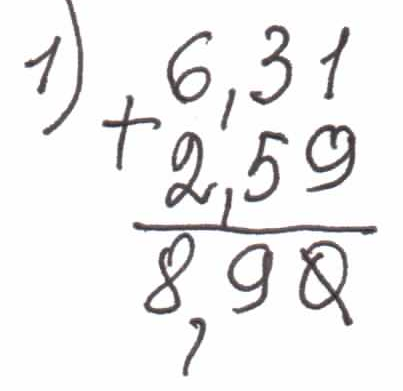 1) 6,31
+
2,59
8,90